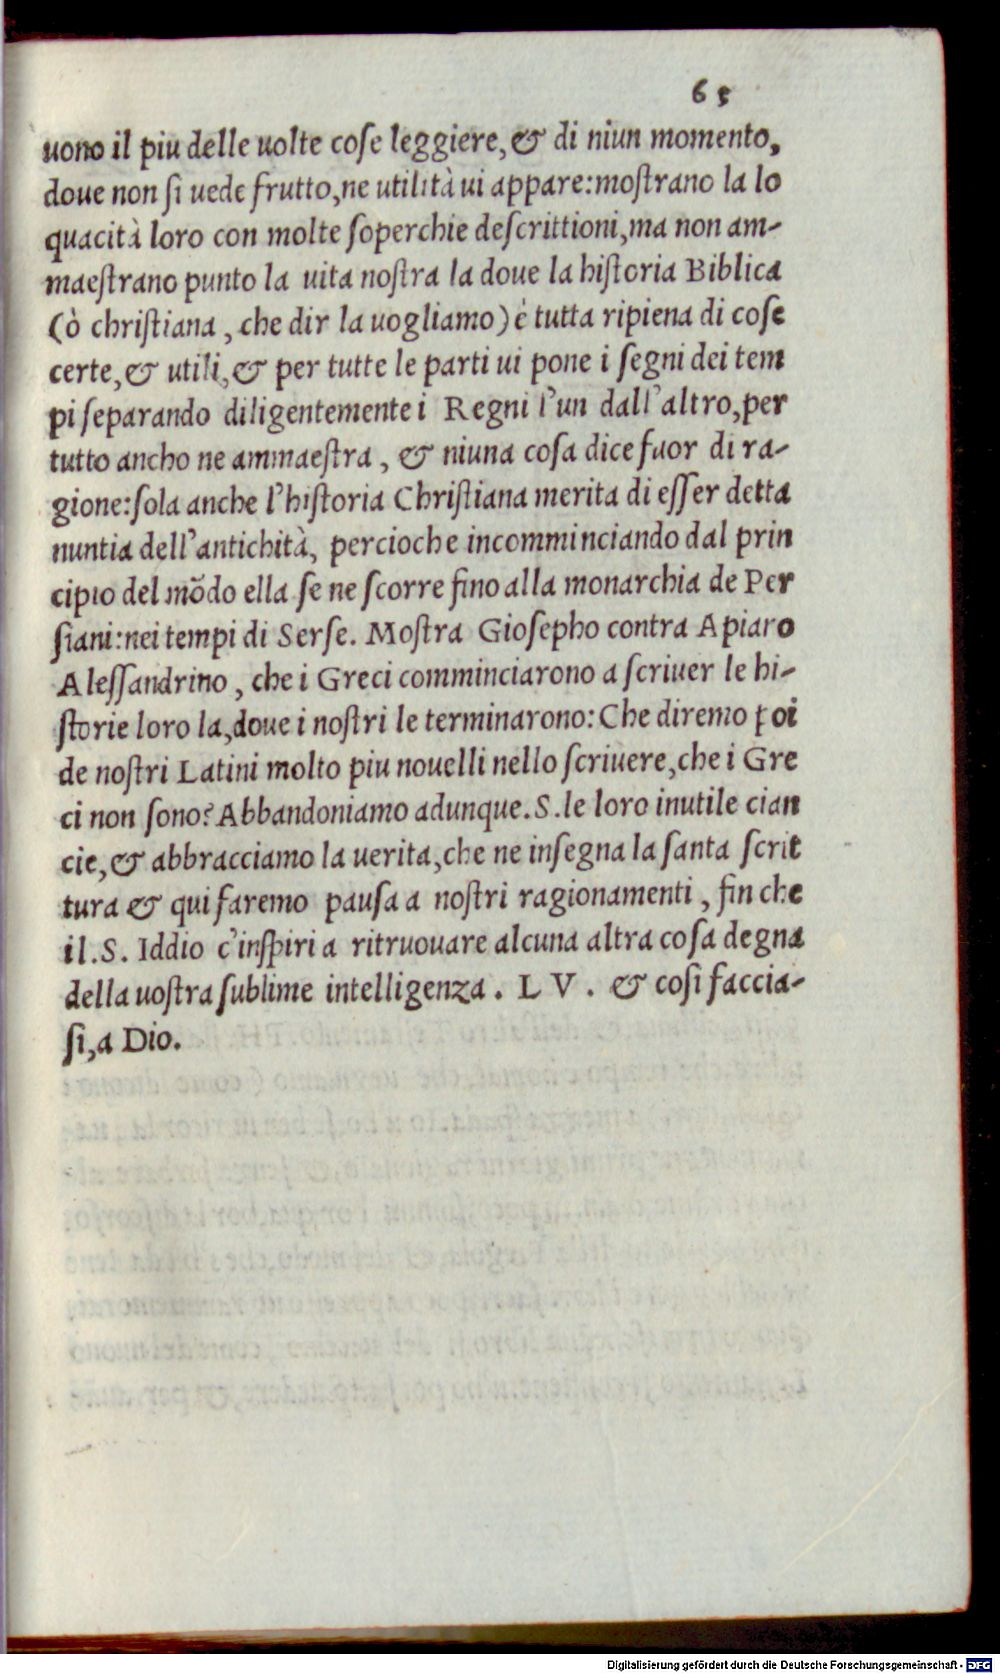 65
uono il piu delle uolte cose leggiere, & di niun momento,
doue non si uede frutto, ne utilità ui appare: mostrano la lo
quacità loro con molte soperchie descrittioni, ma non am-
maestrano punto la vita nostra la doue la historia Biblica
(ò christiana, che dir la uogliamo) è tutta ripiena di cose
certe, & utili, & per tutte le parti ui pone i segni dei tem
pi separando diligentemente i Regni l'un dall'altro, per
tutto ancho ne ammaestra, & niuna cosa dice fuor di ra-
gione: sola anche l'historia Christiana merita di esser detta
nuntia dell'antichità, percioche incomminciando dal prin
cipio del mõdo ella se ne scorre fino alla monarchia de Per
siani: nei tempi di Serse. Mostra Giosepho contra Apiaro
Alessandrino, che i Greci comminciarono a scriuer le hi-
storie loro la, doue i nostri le terminarono: Che diremo poi
de nostri Latini molto piu nouelli nello scriuere, che i Gre
ci non sono? Abbandoniamo adunque. S. le loro inutile cian
cie, & abbracciamo la uerita, che ne insegna la santa scrit
tura & qui faremo pausa a nostri ragionamenti, fin che
il. S. Iddio c'inspiri a ritruouare alcuna altra cosa degna
della uostra sublime intelligenza. L V. & cosi faccia-
si, a Dio.
Digitalisierung gefördert durch die Deutsche Forschungsgemeinschaft - DFG